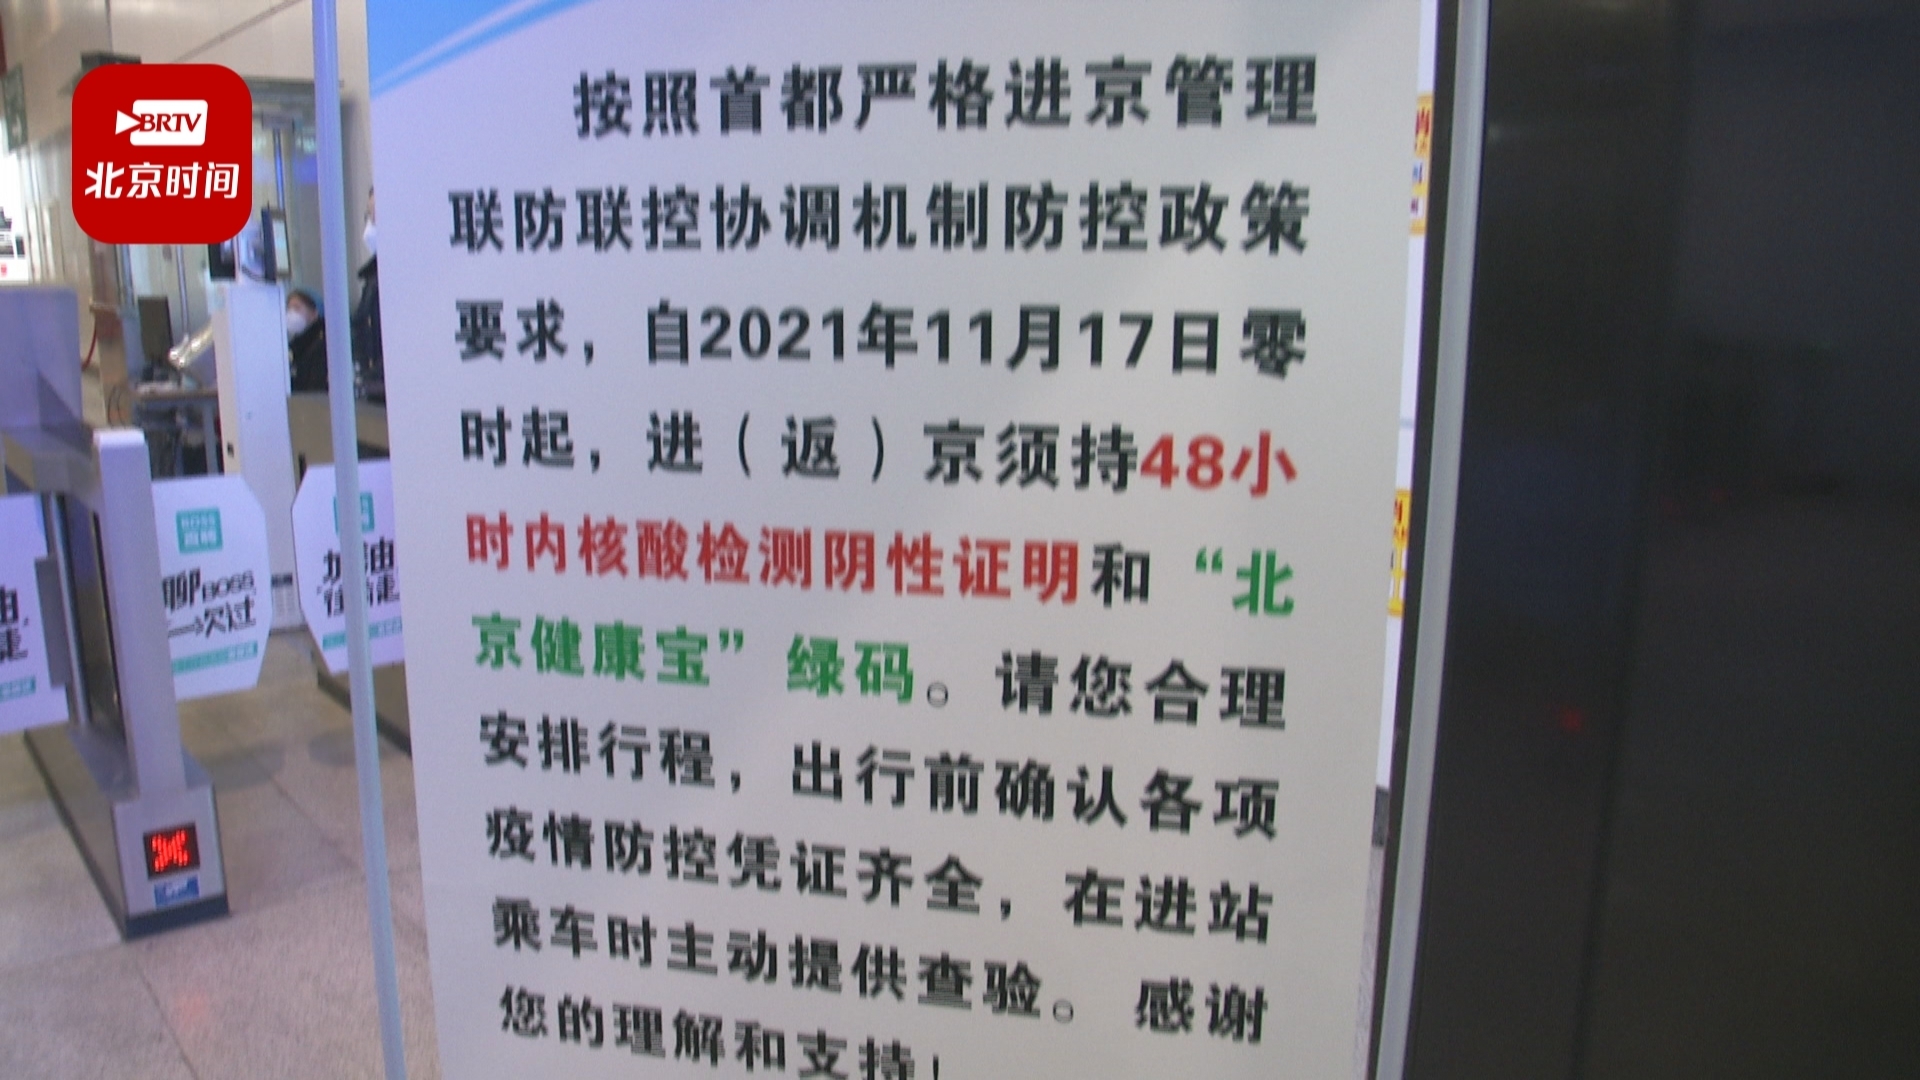 BRTV
北京时间
按照首都严格进京管理
联防联控协调机制防控政策
要求，自2021年11月17日零
时起，进（返）京须持48小
时内核酸检测阴性证明和“北
京健康宝”绿码。请您合理
安排行程，出行前确认各项
疫情防控凭证齐全，在进站
乘车时主动提供查验。感谢
您的理解和支持！
BOSS
直聘
聊BOSS
一次过
加油